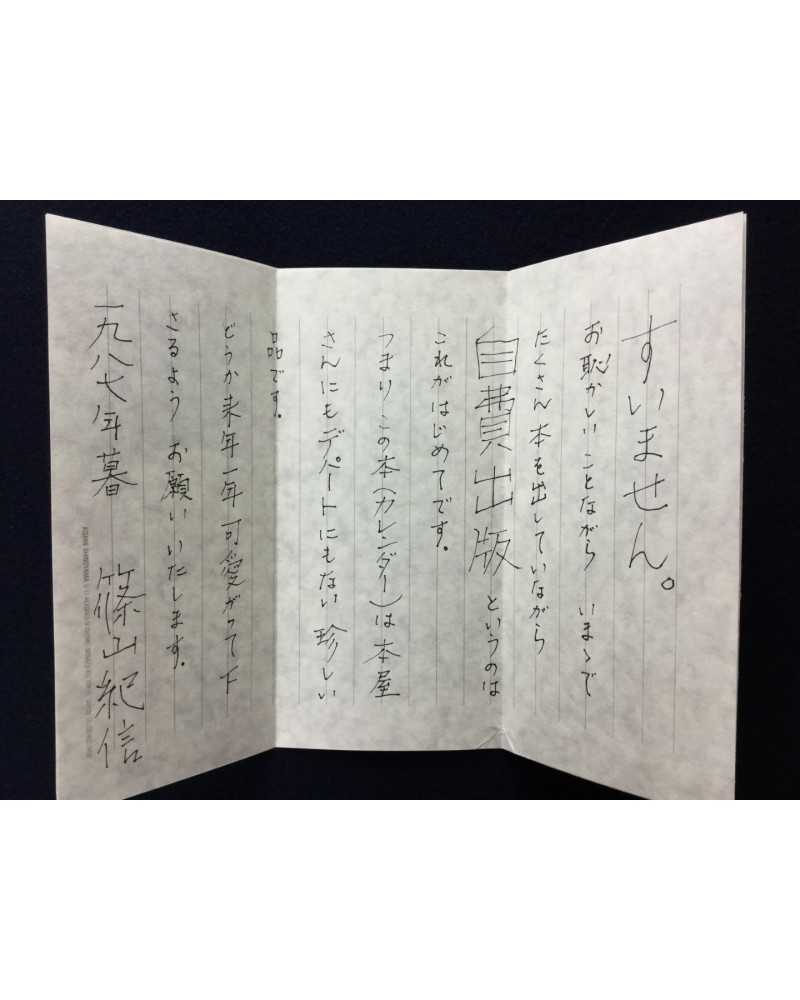 すいません。
お恥かしいことながら いまゝで
たくさん本を出していながら
自費出版 というのは
これがはじめてです。
つまりこの本(カレンダー)は本屋
さんにもデパートにもない珍しい
品です。
どうか来年一年可愛がって下
さるよう お願いいたします。
一九八七年暮 篠山紀信